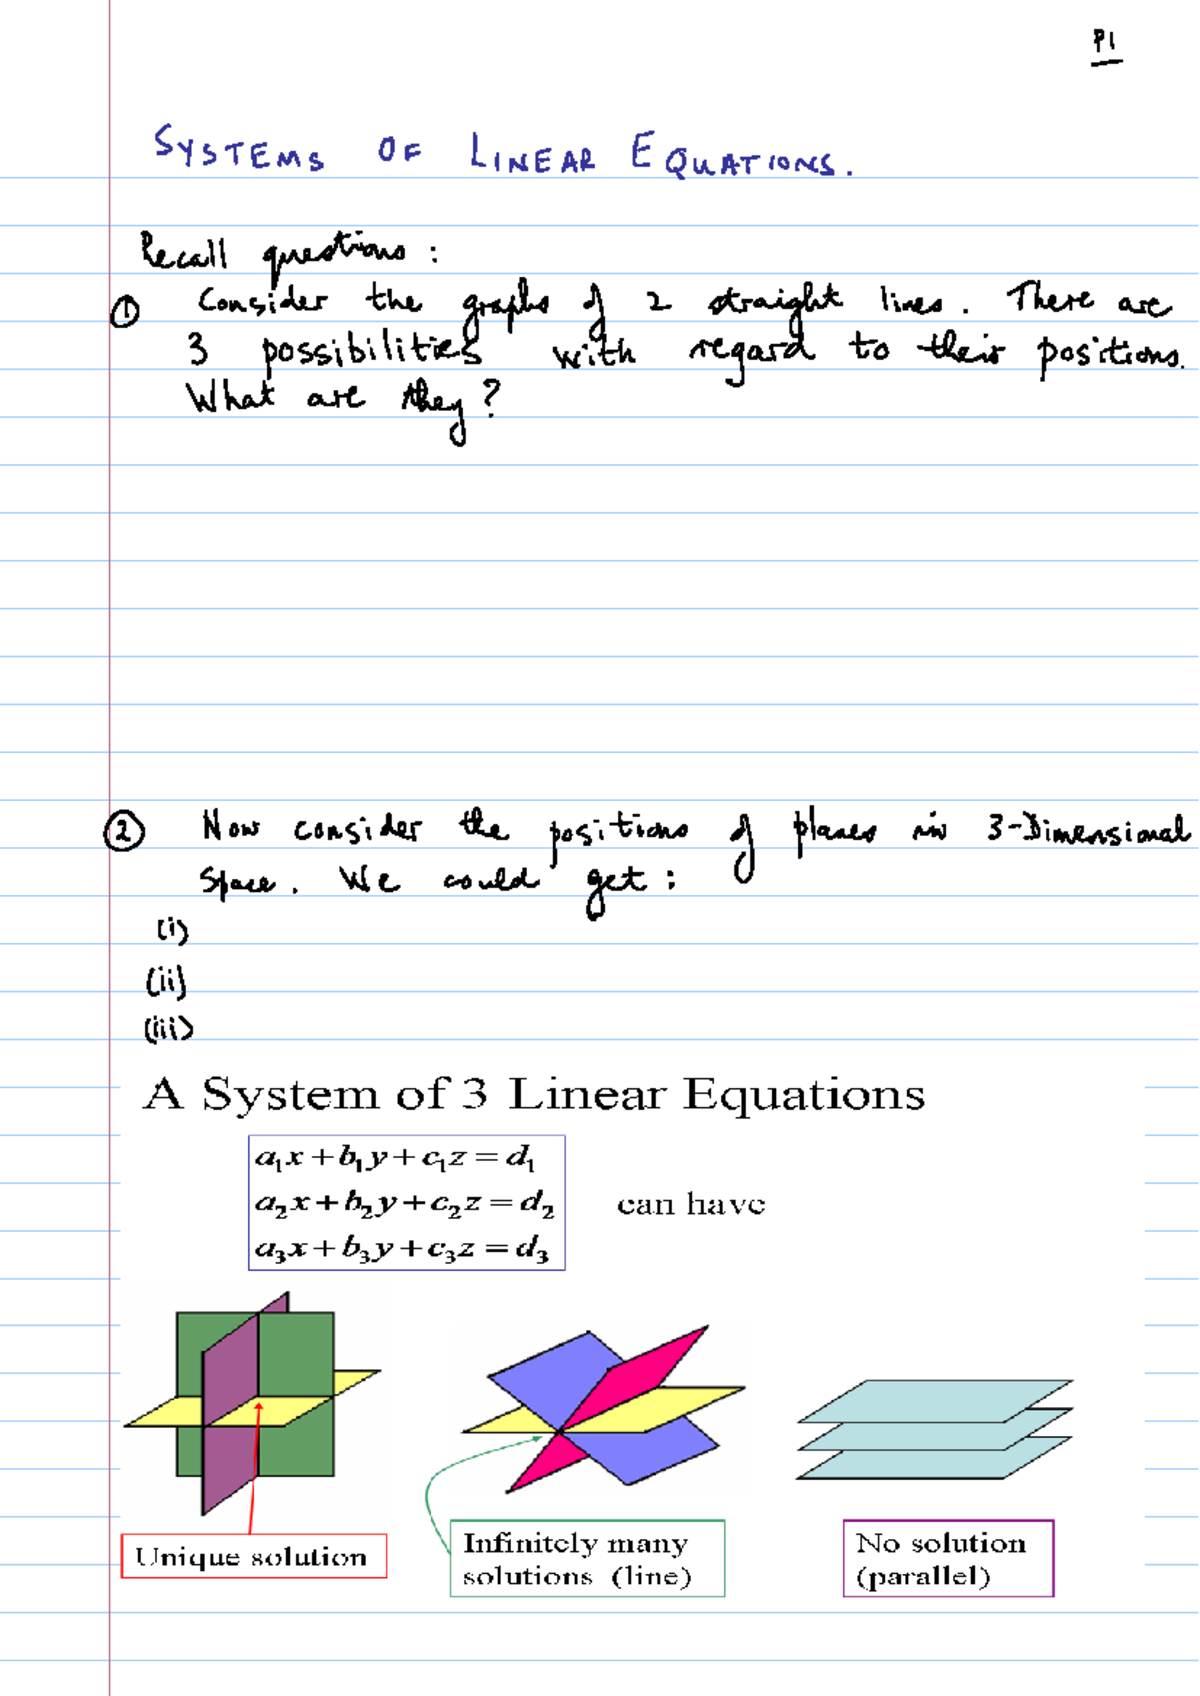 P1
SYSTEMS OF LINEAR EQUATIONS.
Recall questions :
① Consider the graphs of 2 straight lines. There are
3 possibilities with regard to their positions.
What are they?
② Now consider the positions of planes in 3-Dimensional
Space. We could get :
(i)
(ii)
(iii)
A System of 3 Linear Equations
a₁x + b₁y + c₁z = d₁
a₂x + b₂y + c₂z = d₂
can have
a₃x + b₃y + c₃z = d₃
Unique solution
Infinitely many
solutions (line)
No solution
(parallel)